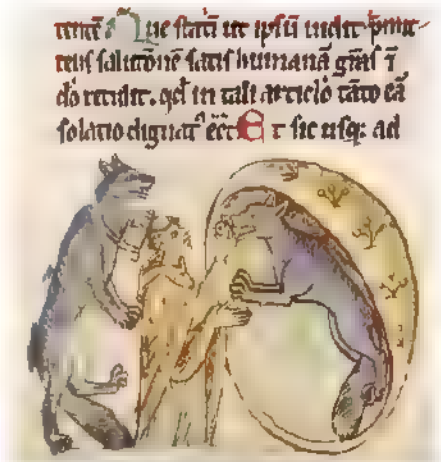 Que statī ut ipsū uidit p̄mit-
tens salutōnē satis humanā grās
do retulit. qđ in tali articlo tāto eā
solatio dignat᾽ eēt Et sic usqꝫ ad